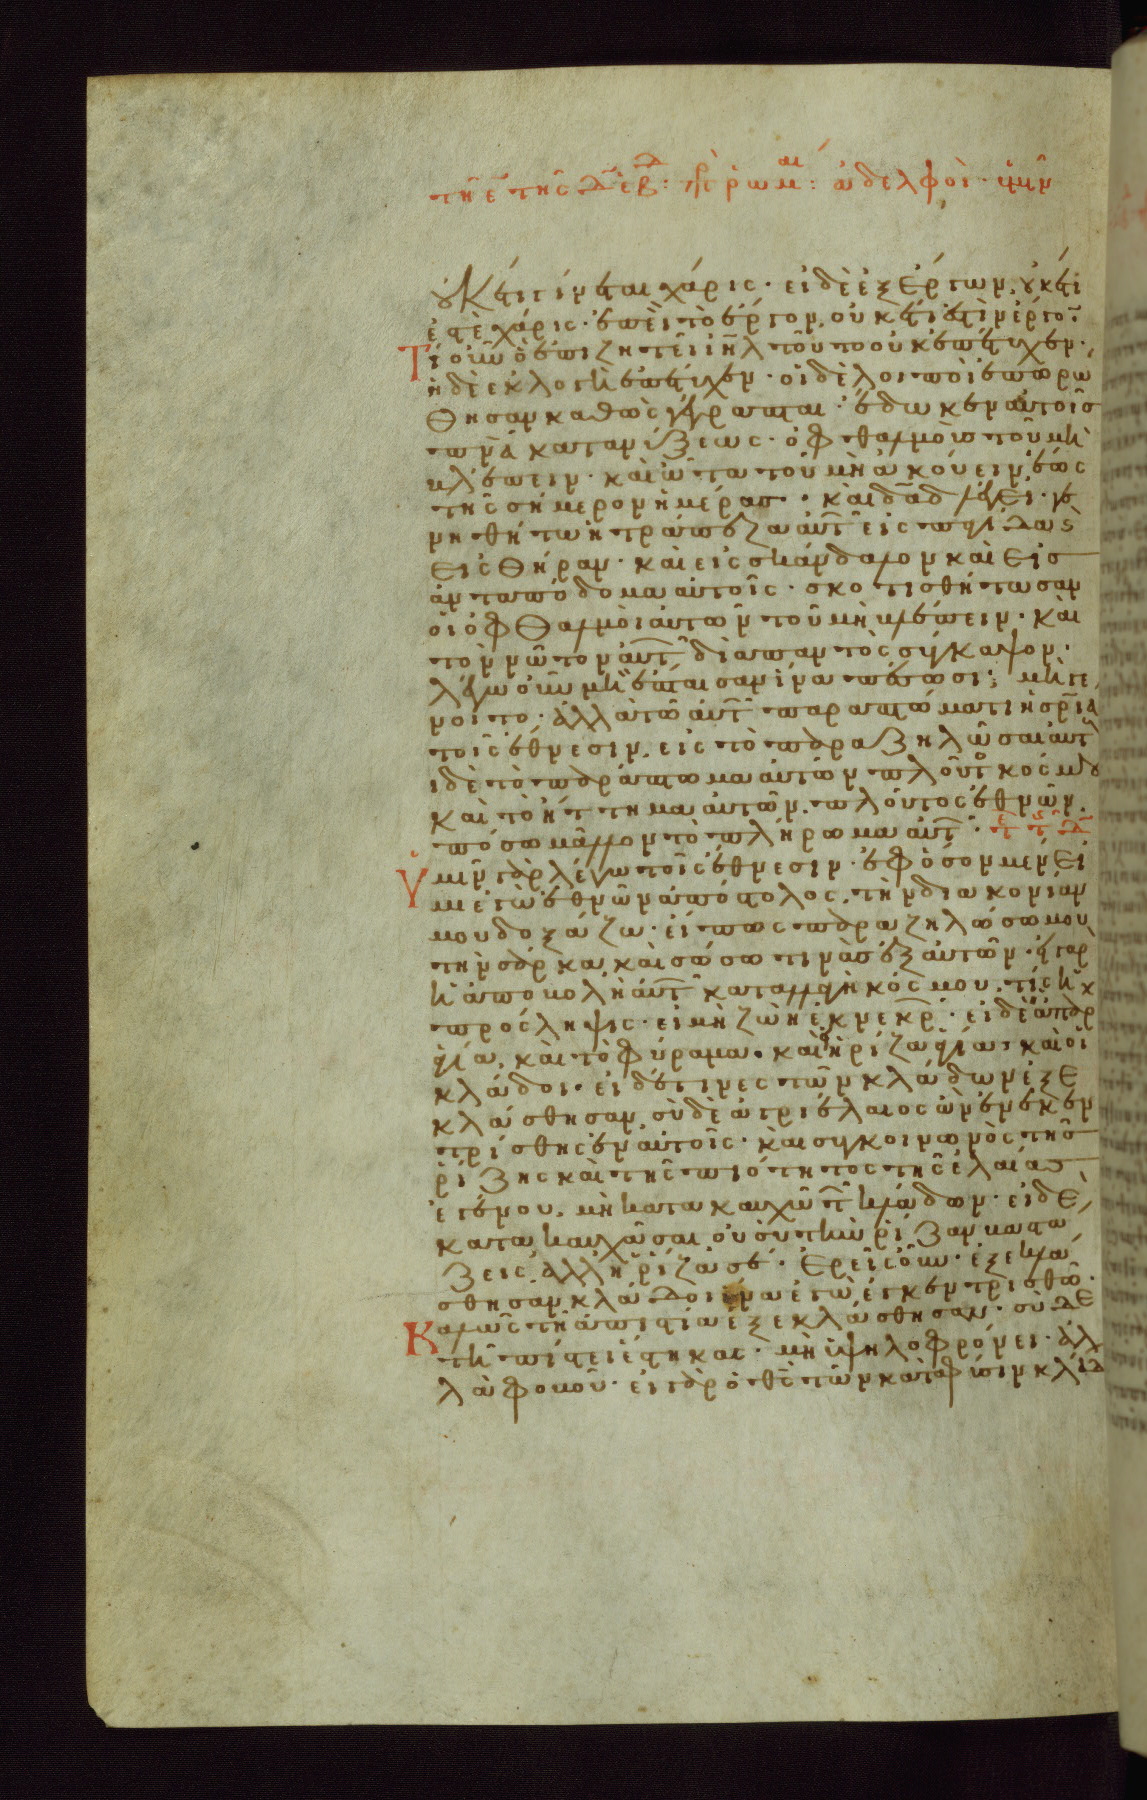 τῆ ε τῆς δ ἑβδ: πρ ρωμαι: ἀδελφοὶ· ὑμῖν
οὐκέτι γίνεται χάρις· εἰ δὲ ἐξ ἔργων, οὐκέτι
ἐστὶ χάρις· ἐπεὶ τὸ ἔργον, οὐκέτι ἐστὶν ἔργον·
Τί οὖν ὃ ἐπιζητεῖ ἰηλ τοῦτο οὐκ ἐπέτυχεν·
ἡ δὲ ἐκλογὴ ἐπέτυχεν· οἱ δὲ λοιποὶ ἐπωρώ
θησαν καθὼς γέγραπται· ἔδωκεν αὐτοῖς
πνα κατανύξεως· ὀφθαλμοὺς τοῦ μὴ
βλέπειν· καὶ ὦτα τοῦ μὴ ἀκούειν, ἕως
τῆς σήμερον ἡμέρας· καὶ δαδ λέγει· γε
νηθήτω ἡ τράπεζα αὐτ εἰς παγίδα
εἰς θήραν· καὶ εἰς σκάνδαλον καὶ εἰς
ἀνταπόδομα αὐτοῖς· σκοτισθήτωσαν
οἱ ὀφθαλμοὶ αὐτῶν τοῦ μὴ βλέπειν· καὶ
τὸν νῶτον αὐτ διαπαντὸς σύγκαμψον·
λέγω οὖν μὴ ἔπταισαν ἵνα πέσωσι; μὴ γέ
νοιτο· ἀλλὰ τῶ αὐτ παραπτώματι ἡ σρία
τοῖς ἔθνεσιν, εἰς τὸ παραζηλῶσαι αὐτ
ἰ δὲ τὸ παράπτωμα αὐτῶν πλοῦτ κόσμου
καὶ τὸ ἥττημα αὐτῶν, πλοῦτος ἐθνῶν,
πόσω μᾶλλον τὸ πλήρωμα αὐτ·
Ὑμῖν γὰρ λέγω τοῖς ἔθνεσιν· ἐφ' ὅσον μέν εἰ
μι ἐγὼ ἐθνῶν ἀπόστολος, τὴν διακονίαν
μου δοξάζω· εἴ πως παραζηλώσω μου
τὴν σάρκα, καὶ σώσω τινὰς ἐξ αὐτῶν· εἰ γὰρ
ἡ ἀποβολὴ αὐτ καταλλαγὴ κόσμου, τίς ἡ
πρόσληψις· εἰ μὴ ζωὴ ἐκ νεκρ· εἰ δὲ ἡ ἀπαρ
ἁγία, καὶ τὸ φύραμα· καὶ εἰ ἡ ῥίζα ἁγία· καὶ οἱ
κλάδοι· εἰ δέ τινες τῶν κλάδων ἐξε
κλάσθησαν, σὺ δὲ ἀγριέλαιος ὢν ἐνεκεν
τρίσθης ἐν αὐτοῖς· καὶ συγκοινωνὸς τῆς
ῥίζης καὶ τῆς πιότητος τῆς ἐλαίας
ἐγένου, μὴ κατακαυχῶ τ κλάδων· εἰ δὲ
κατακαυχᾶσαι οὐ σὺ τὴν ῥίζαν βαστά
ζεις, ἀλλ' ἡ ῥίζα σέ· Ἐρεῖς οὖν· ἐξεκλά
σθησαν κλάδοι ἵνα ἐγὼ ἐγκεντρισθῶ·
Καλῶς τῆ ἀπιστία ἐξεκλάσθησαν· σὺ δὲ
τῆ πίστει ἕστηκας· μὴ ὑψηλοφρόνει· ἀλ
λὰ φοβοῦ· εἰ γὰρ ὁ θς τῶν κατὰ φύσιν κλά